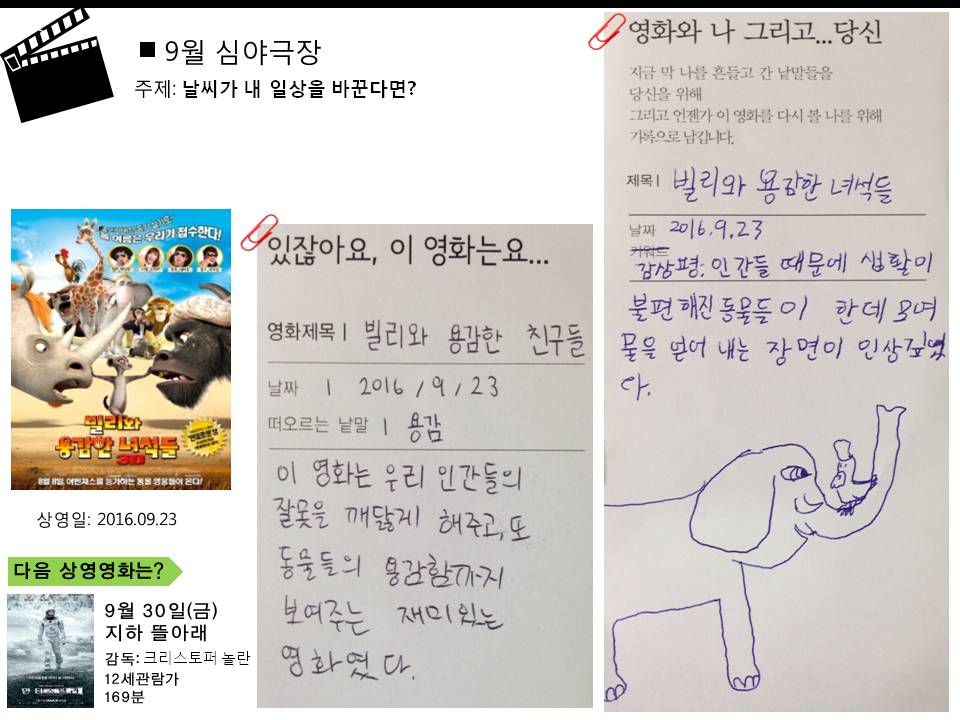 ■ 9월 심야극장
주제: 날씨가 내 일상을 바꾼다면?
여름은 우리가 접수한다!
빌리와
용감한 녀석들
3D
상영일: 2016.09.23
다음 상영영화는?
인터스텔라
9월 30일(금)
지하 뜰아래
감독: 크리스토퍼 놀란
12세관람가
169분
있잖아요, 이 영화는요...
영화제목 | 빌리와 용감한 친구들
날짜 | 2016/9/23
떠오르는 낱말 | 용감
이 영화는 우리 인간들의
잘못을 깨닳게 해주고, 또
동물들의 용감함까지
보여주는 재미있는
영화였다.
영화와 나 그리고...당신
지금 막 나를 흔들고 간 낱말들을
당신을 위해
그리고 언젠가 이 영화를 다시 볼 나를 위해
기록으로 남깁니다.
제목 | 빌리와 용감한 녀석들
날짜 2016.9.23
키워드
감상평: 인간들 때문에 생활이
불편해진 동물들이 한데 모여
물을 얻어 내는 장면이 인상깊었
다.